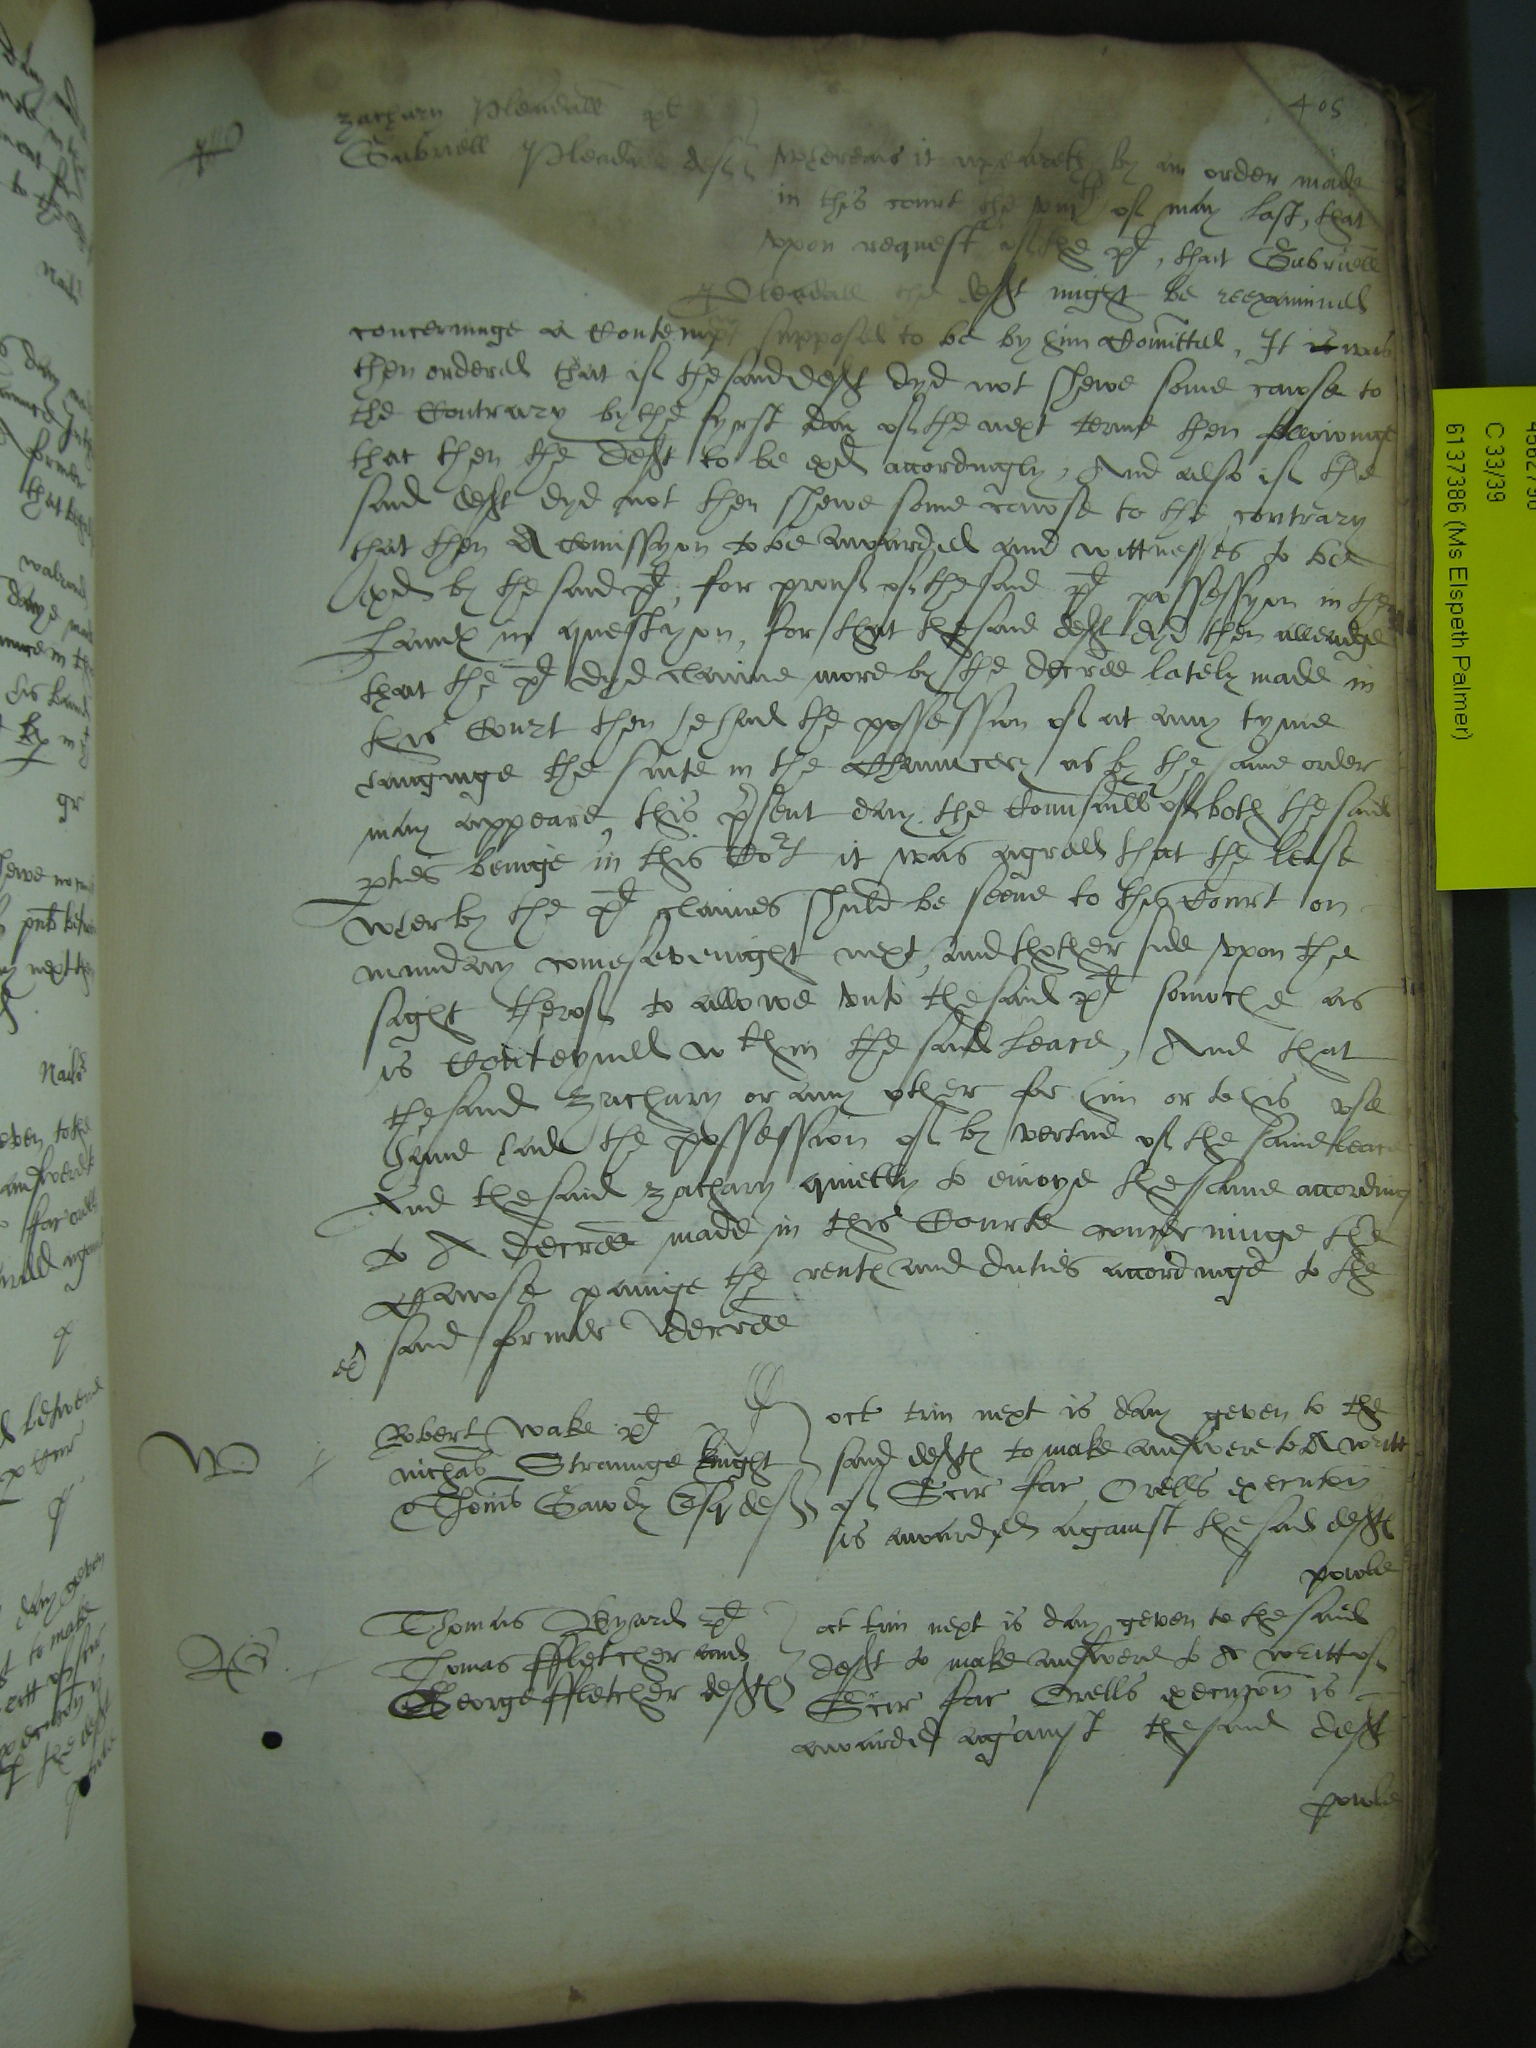 405
Zachary Pleadall pl
Gabriell Pleadall deft
Whereas it apeareth by an order made
in this court the of may last, that
vpon request of the pl, that Gabriell
Pleadall the deft might be reexamined
concerninge a Contempt supposed to be by him Comitted, It is was
then ordered that if the said deft dyd not shewe some cawse to
the Contrary by the fyrst day of the next terme then followinge
that then the deft to be exd accordingly, And also if the
said deft dyd not then shewe some cawse to the contrary
that then A Comissyon to be awarded and wittnesses to be
exd by the said pl, for prouf of the said pl possessyon in the
Landes in questyon, for that the said deft dyd then alleadge
that the pl dyd clayme more by the decree lately made in
this Court then he had the possession of at any tyme
hanginge the suite in the Chauncery as by the same order
may appeare, this psent day the Counsaills of both the said
pties beinge in this Cort it was agreed that the lease
wherby the pl claimes shuld be seene to this Court on
munday come sevenight next, and thother side vpon the
sight therof to allowe vnto the said pl somoche as
is Conteyned wthin the said leace, And that
the said Zachary or any other for him or to his vse
haue had the possession of by vertue of the same leace
And the said Zachary quietly to enioye the same according
to A decree made in this Courte concerninge the
Cawse payinge the rentes and duties accordinge to the
said former decree
ex
W
Robert Wake pl
nichas Straunge knight
Thoms Gawdy Esqr deftes
oct trin next is day geven to the
said deftes to make answere to A writt
of Scir fac Orells execution
is awarded against the said deftes
powle
Thomas Byard pl
Thomas ffletcher and
George ffletcher deftes
oct trin next is day geven to the said
deft to make answere to A writt of
Scir fac Orells execucon is
awarded against the said deft
powle
C 33/39
6137386 (Ms Elspeth Palmer)